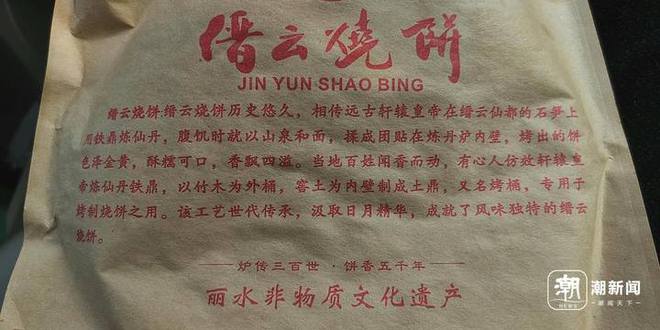 缙云燒餅
JIN YUN SHAO BING
缙云烧饼:缙云烧饼历史悠久，相传远古轩辕皇帝在缙云仙都的石笋上
用铁鼎炼仙丹，腹饥时就以山泉和面，揉成团贴在炼丹炉内壁，烤出的饼
色泽金黄，酥糯可口，香飘四溢。当地百姓闻香而动，有心人仿效轩辕皇
帝炼仙丹铁鼎，以竹木为外桶，窖土为内壁制成土鼎，又名烤桶，专用于
烤制烧饼之用。该工艺世代传承，汲取日月精华，成就了风味独特的缙云
烧饼。
炉传三百世·饼香五千年
丽水非物质文化遗产
潮
NEWS
潮新闻
潮闻天下